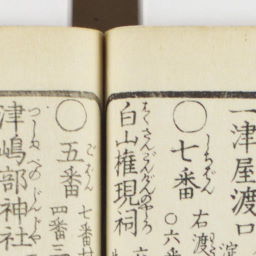 一津屋渡口
淀
○七番
しちばん
右渡
○六番
白山權現祠
はくさんごんげんのやしろ
六
○五番
ごばん
七番
四番三
津嶋部神社
つしまべのじんじや